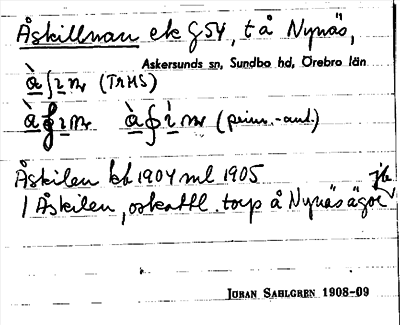 Åskillnan ek G 54, t å Nynäs,
Askersunds sn, Sundbo hd, Örebro län
(TrMS)
(prim.-ant.)
Åskilen kb 1904 ml 1905
1 Åskilen, oskattl. torp å Nynäs ägor
JÖRAN SAHLGREN 1908-09